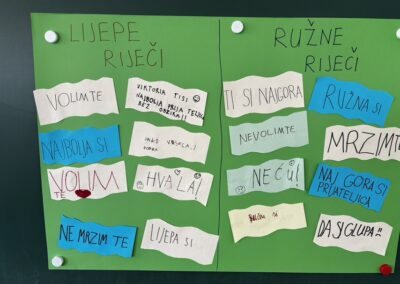 LIJEPE
RIJEČI
VOLIM TE
VIKTORIA TI SI
NAJBOLJA PRIJATELJICA
BEZ OBZIRA!!
NAJBOLJA SI
VOLIM
TE
HVALA!
NE MRZIM TE
LIJEPA SI
RUŽNE
RIJEČI
TI SI NAJGORA
RUŽNA SI
NEVOLIMTE
MRZIMTE
NEĆU!
NAJ GORA SI
PRIJATELJICA
SI
DA SI GLUPA!